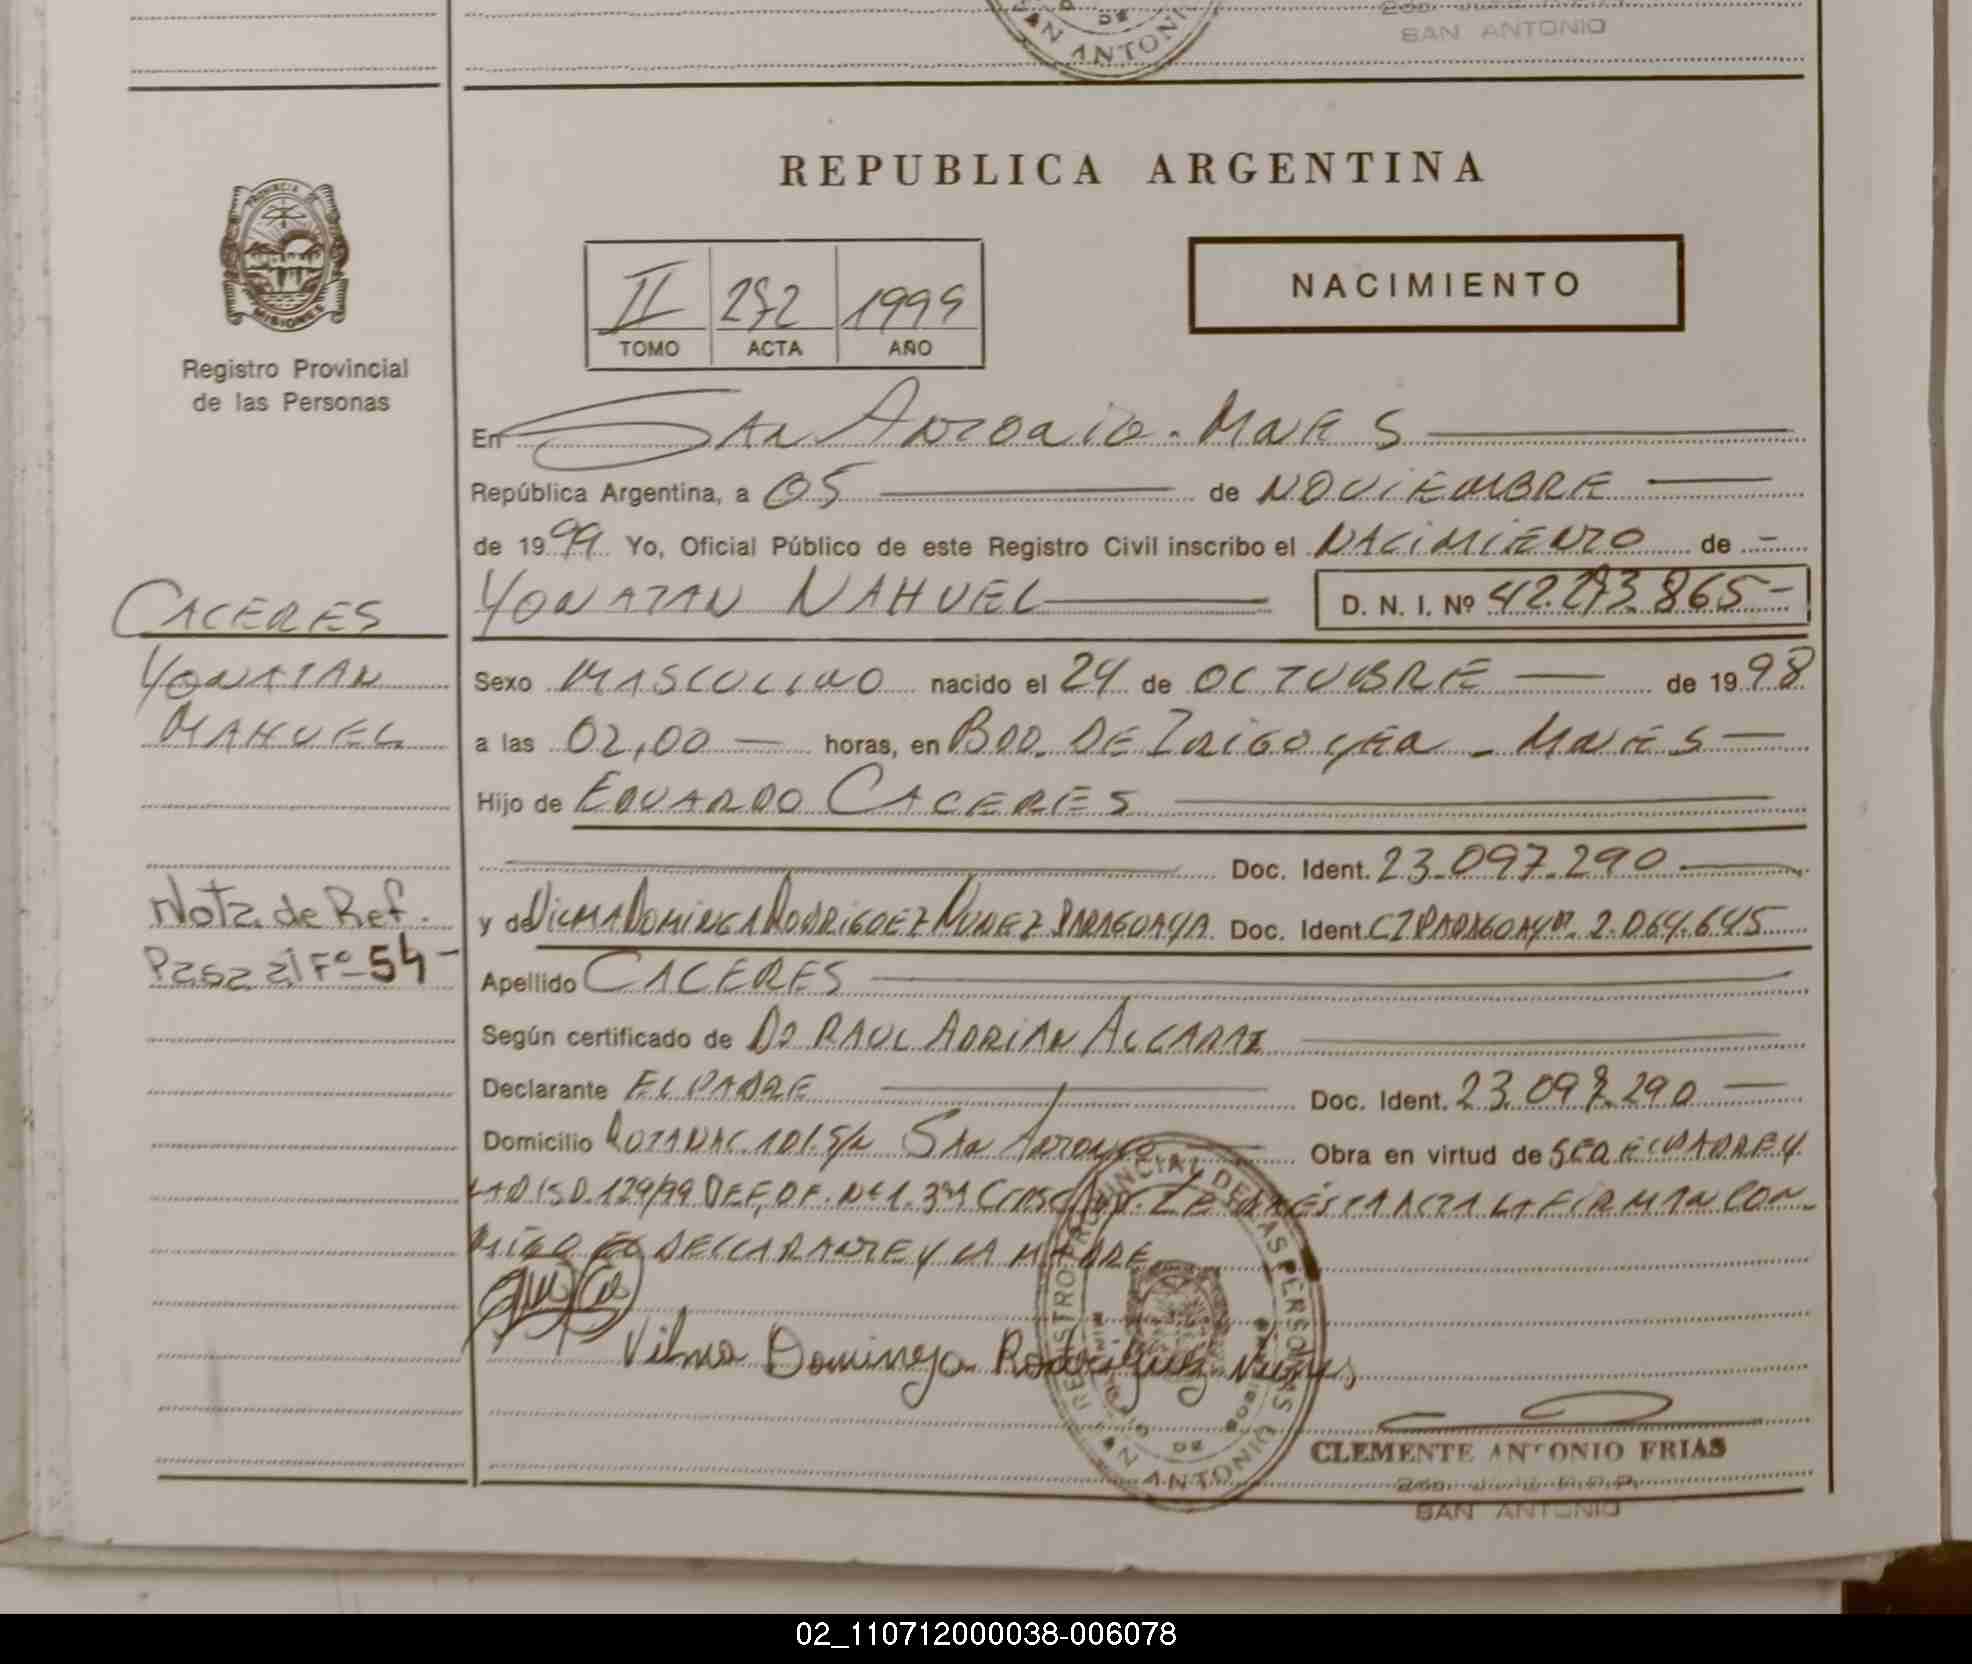 SAN ANTONIO
SAN ANTONIO
REPUBLICA ARGENTINA
PROVINCIA DE
MISIONES
Registro Provincial
de las Personas
II 272 1999
TOMO ACTA AÑO
NACIMIENTO
En SAN ANTONIO - MNES
República Argentina, a 05 de NOVIEMBRE
de 1999 Yo, Oficial Público de este Registro Civil inscribo el NACIMIENTO de -
CACERES
YONATAN NAHUEL
D. N. I. Nº 42.273.865-
YONATAN
NAHUEL
Sexo MASCULINO nacido el 24 de OCTUBRE de 1998
a las 02,00 horas, en BDO. DE IRIGOYEN - MNES
Hijo de EDUARDO CACERES
Doc. Ident. 23.097.290
Nota de Ref.
Pasa al Fº 54-
y de VILMA DOMINGA RODRIGUEZ NUNEZ PARAGUAYA Doc. Ident. CI PARAGUAYA. 2.064.645
Apellido CACERES
Según certificado de DR RAUL ADRIAN ALCARAZ
Declarante EL PADRE Doc. Ident. 23.097.290
Domicilio ROTANAC 101. S/N SAN ANTONIO Obra en virtud de SER EL PADRE Y
LA DISP. 129/99 DEF. OF. Nº 1. 3RA CIRSC. LEIDA ESTA ACTA LA FIRMAN CON-
MIGO EL DECLARANTE Y LA MADRE
Vilma Dominga Rodriguez Nunes
REGISTRO PROVINCIAL DE LAS PERSONAS
SAN ANTONIO
CLEMENTE ANTONIO FRIAS
SAN ANTONIO
02_110712000038-006078